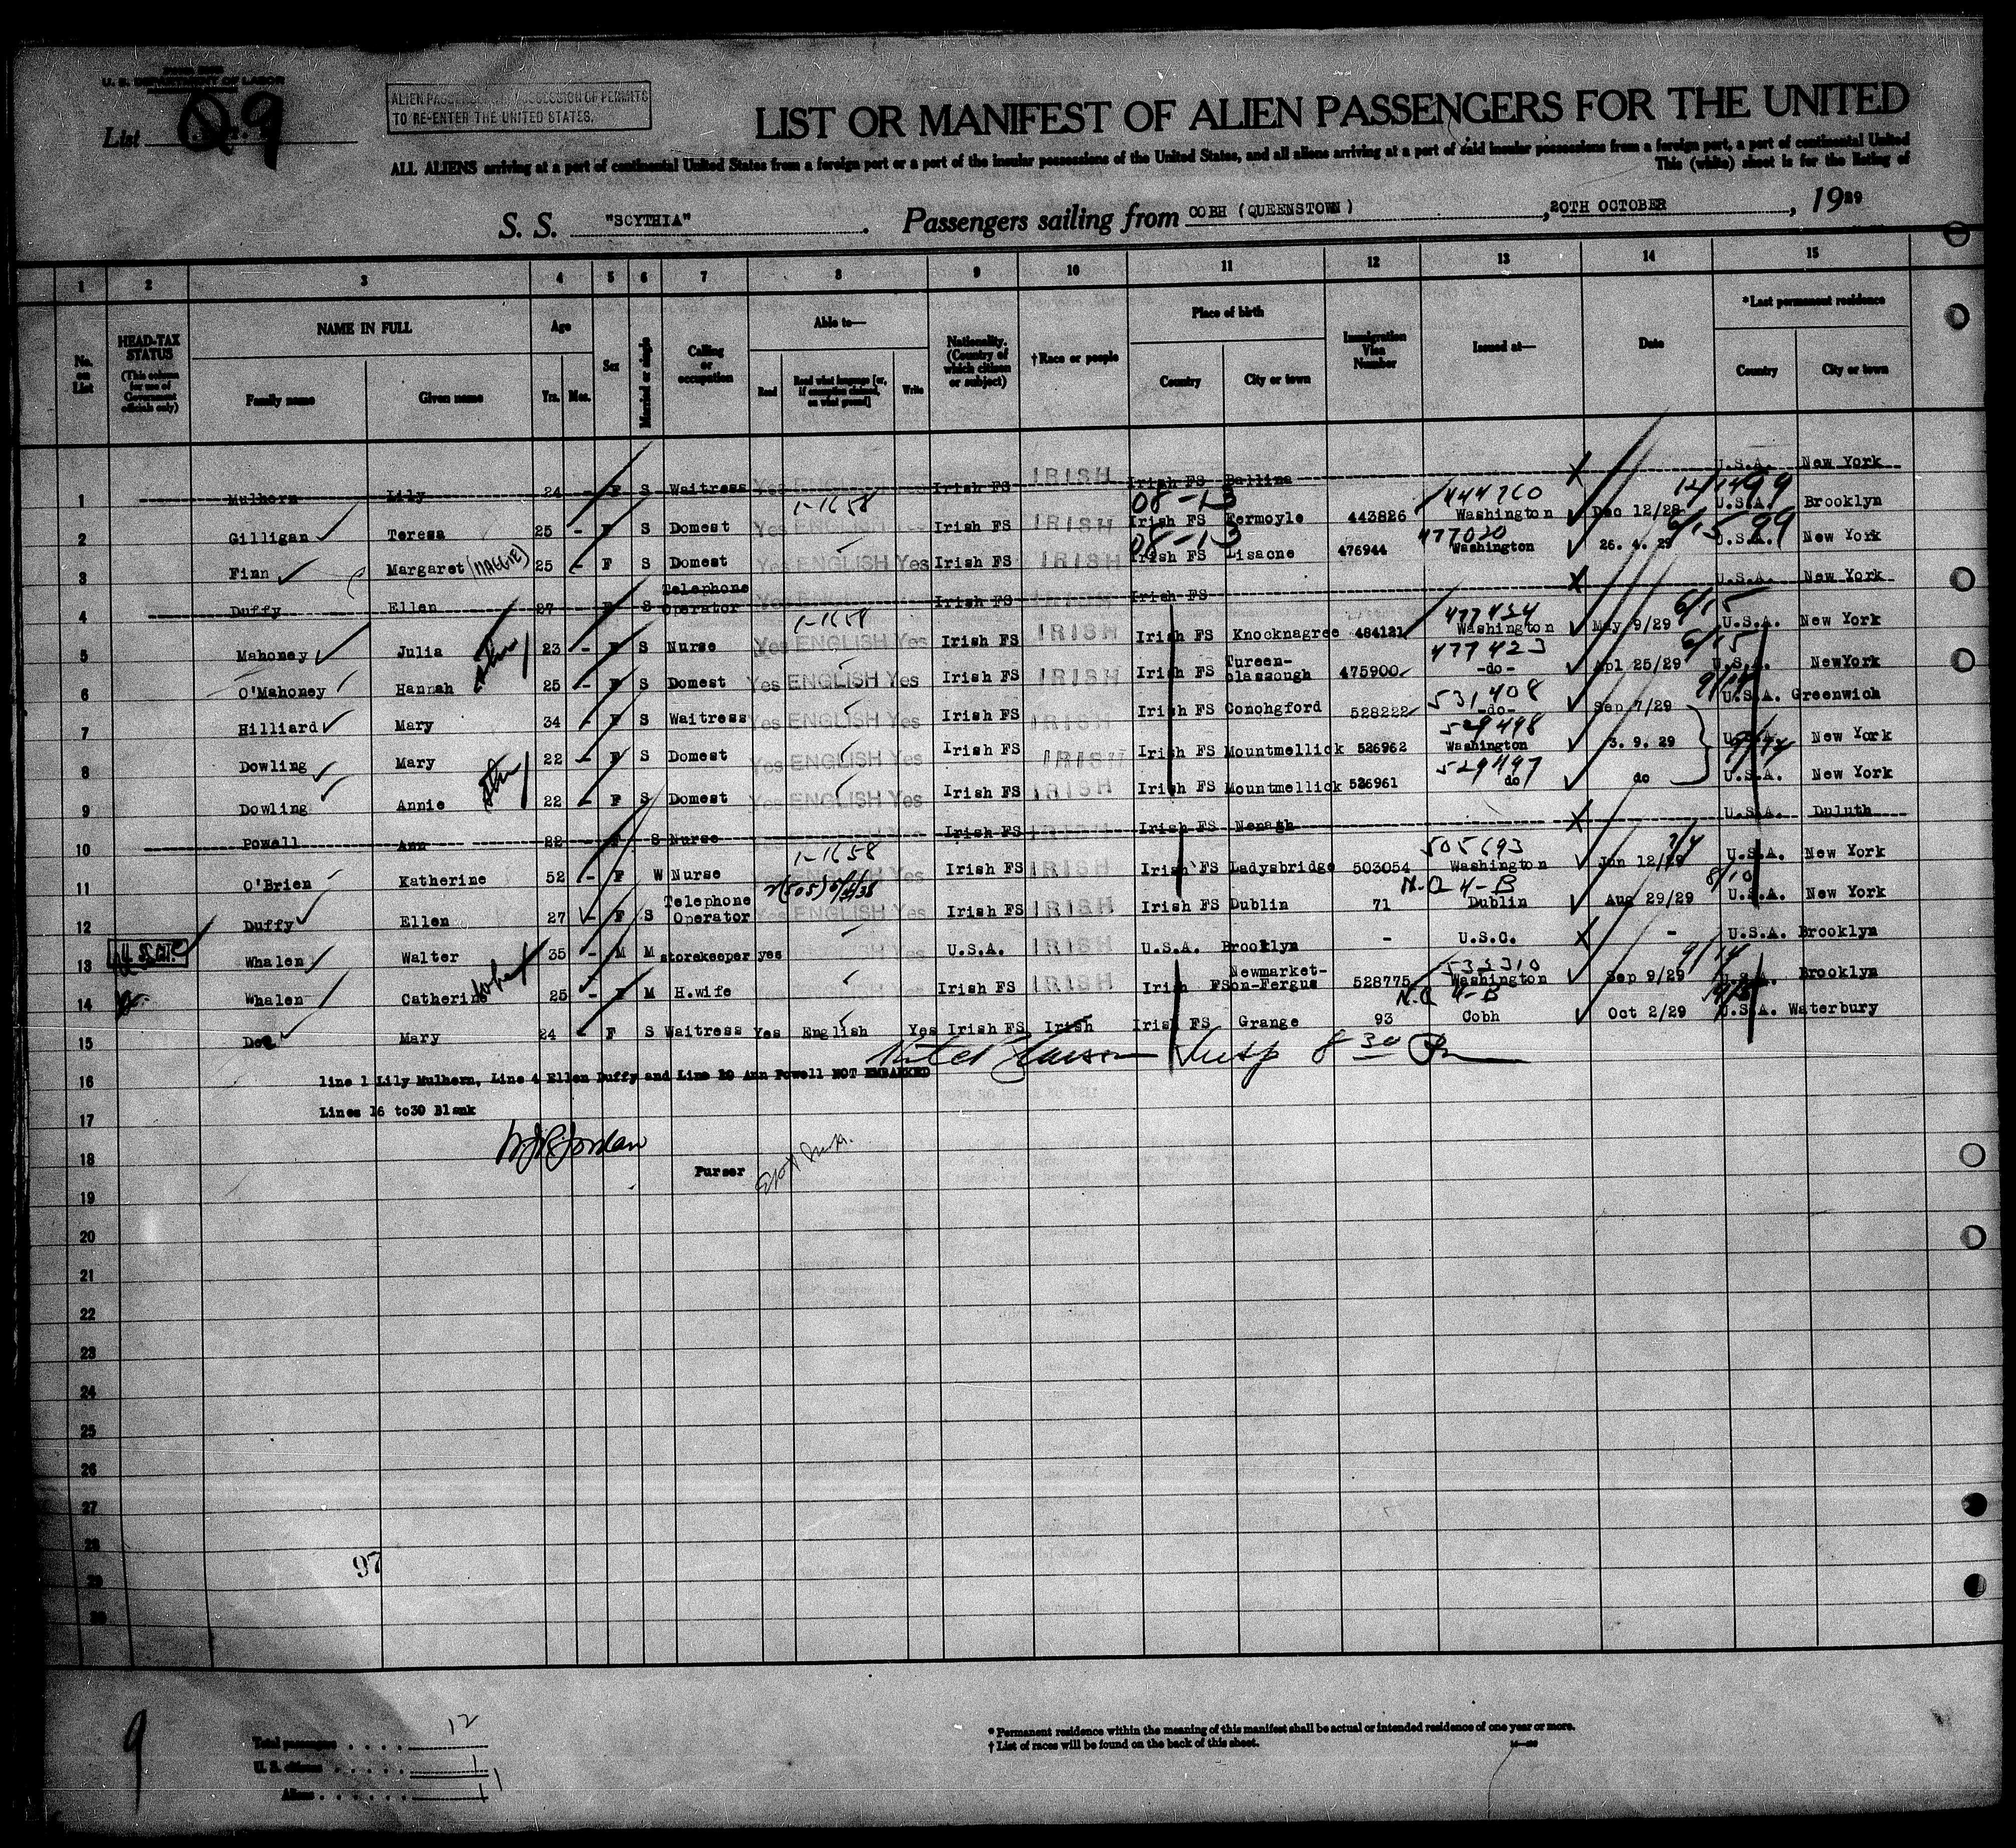 U. S. DEPARTMENT OF LABOR
List 9
ALIEN PASSENGERS IN POSSESSION OF PERMITS
TO RE-ENTER THE UNITED STATES.
LIST OR MANIFEST OF ALIEN PASSENGERS FOR THE UNITED
ALL ALIENS arriving at a port of continental United States from a foreign port or a port of the insular possessions of the United States, and all aliens arriving at a port of said insular possessions from a foreign port, a port of continental United
This (white) sheet is for the listing of
S. S. "SCYTHIA" . Passengers sailing from COBH (QUEENSTOWN) , 20TH OCTOBER , 1929
1 2 3 4 5 6 7 8 9 10 11 12 13 14 15
No. on List
HEAD-TAX STATUS (This column for use of Government officials only)
NAME IN FULL
Family name Given name
Age
Yrs. Mos.
Sex
Married or single
Calling or occupation
Able to—
Read Read what language [or, if exemption claimed, on what ground] Write
Nationality. (Country of which citizen or subject)
†Race or people
Place of birth
Country City or town
Immigration Visa Number
Issued at—
Date
*Last permanent residence
Country City or town
1 Mulhern Lily 24 - F S Waitress Yes ENGLISH Yes Irish FS IRISH Irish FS Ballina X U.S.A. New York
1-1658 08-13 444760 12/14 99
2 Gilligan Teresa 25 - F S Domest Yes ENGLISH Yes Irish FS IRISH Irish FS Fermoyle 443826 Washington Dec 12/28 U.S.A. Brooklyn
08-13 477020 6/15 99
3 Finn Margaret (MAGGIE) 25 - F S Domest Yes ENGLISH Yes Irish FS IRISH Irish FS Lisacne 476944 Washington 26. 4. 29 U.S.A. New York
4 Duffy Ellen 27 - F S Telephone Operator Yes ENGLISH Irish FS IRISH Irish FS X U.S.A. New York
1-1658 477434 6/15
5 Mahoney Julia 23 - F S Nurse Yes ENGLISH Yes Irish FS IRISH Irish FS Knocknagree 484121 Washington May 9/29 U.S.A. New York
477423 6/15
6 O'Mahoney Hannah 25 - F S Domest Yes ENGLISH Yes Irish FS IRISH Irish FS Tureen-glassough 475900 -do- Apl 25/29 U.S.A. NewYork
531408
7 Hilliard Mary 34 - F S Waitress Yes ENGLISH Yes Irish FS IRISH Irish FS Conohgford 528222 -do- Sep 7/29 U.S.A. Greenwich
529498
8 Dowling Mary 22 - F S Domest Yes ENGLISH Yes Irish FS IRISH Irish FS Mountmellick 526962 Washington 3. 9. 29 U.S.A. New York
529497
9 Dowling Annie 22 - F S Domest Yes ENGLISH Yes Irish FS IRISH Irish FS Mountmellick 526961 do do U.S.A. New York
10 Powell Ann 22 - F S Nurse Irish FS IRISH Irish FS Nenagh X U.S.A. Duluth
1-1658 505693
11 O'Brien Katherine 52 - F W Nurse Yes Irish FS IRISH Irish FS Ladysbridge 503054 Washington Jun 12/29 U.S.A. New York
N.Q 4-B 8/10
12 Duffy Ellen 27 - F S Telephone Operator Yes ENGLISH Yes Irish FS IRISH Irish FS Dublin 71 Dublin Aug 29/29 U.S.A. New York
U.S. CIT.
13 Whalen Walter 35 - M M storekeeper yes Yes U.S.A. IRISH U.S.A. Brooklyn - U.S.C. X - U.S.A. Brooklyn
533310 9/14
14 Whalen Catherine 25 - F M H.wife Yes ENGLISH Yes Irish FS IRISH Irish FS Newmarket-on-Fergus 528775 Washington Sep 9/29 U.S.A. Brooklyn
N.Q 4-B
15 Mary 24 - F S Waitress Yes English Yes Irish FS Irish Irish FS Grange 93 Cobh Oct 2/29 U.S.A. Waterbury
Insp 8 30 Pm
16 line 1 Lily Mulhern, Line 4 Ellen Duffy and Line 10 Ann Powell NOT EMBARKED
Lines 16 to30 Blank
17
Jordan
18 Purser
19
20
21
22
23
24
25
26
27
28
97
29
30
9
Total passengers . . . . 12
U. S. citizens . . . . . 1
Aliens . . . . . . 11
* Permanent residence within the meaning of this manifest shall be actual or intended residence of one year or more.
† List of races will be found on the back of this sheet.